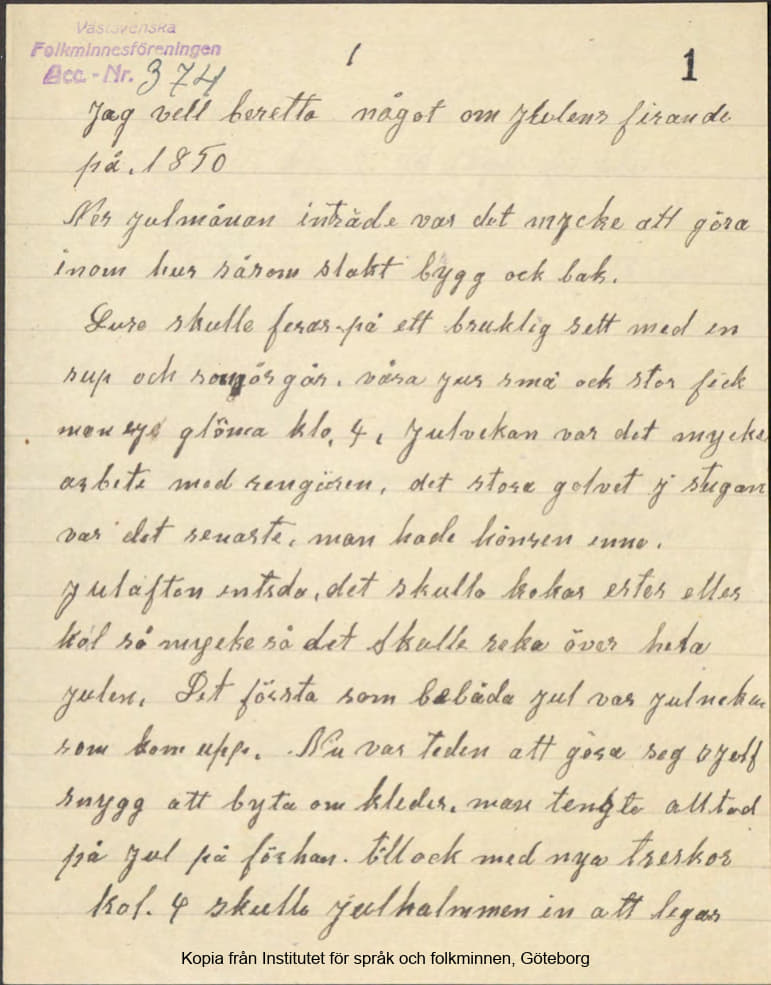 Västsvenska
Folkminnesföreningen
Acc.-Nr. 374
1
1
Jag vell beretta något om Julens firande
på. 1850
Ner julmånan inträde var det mycke att göra
inom hus såsom slakt bygg ock bak.
skulle feras på ett bruklig sett med en
sup och små ock stor fick
man glöma klo. 4. Julvekan var det mycke
arbete med rengören, det stora golvet j stugan
var det senaste. man hade hönsen enne.
julafton entrda, det skulle kokas erter eller
kål så mycke så det skulle reka över hela
julen. Det första som bebåda jul var
som kom upp. Nu var teden att göra seg sjelf
snygg att byta om kleder. man tengte alltad
på jul på förhan. tellock med nya treskor
kol. 4 skulle julhalmmen in att legas
Kopia från Institutet för språk och folkminnen, Göteborg